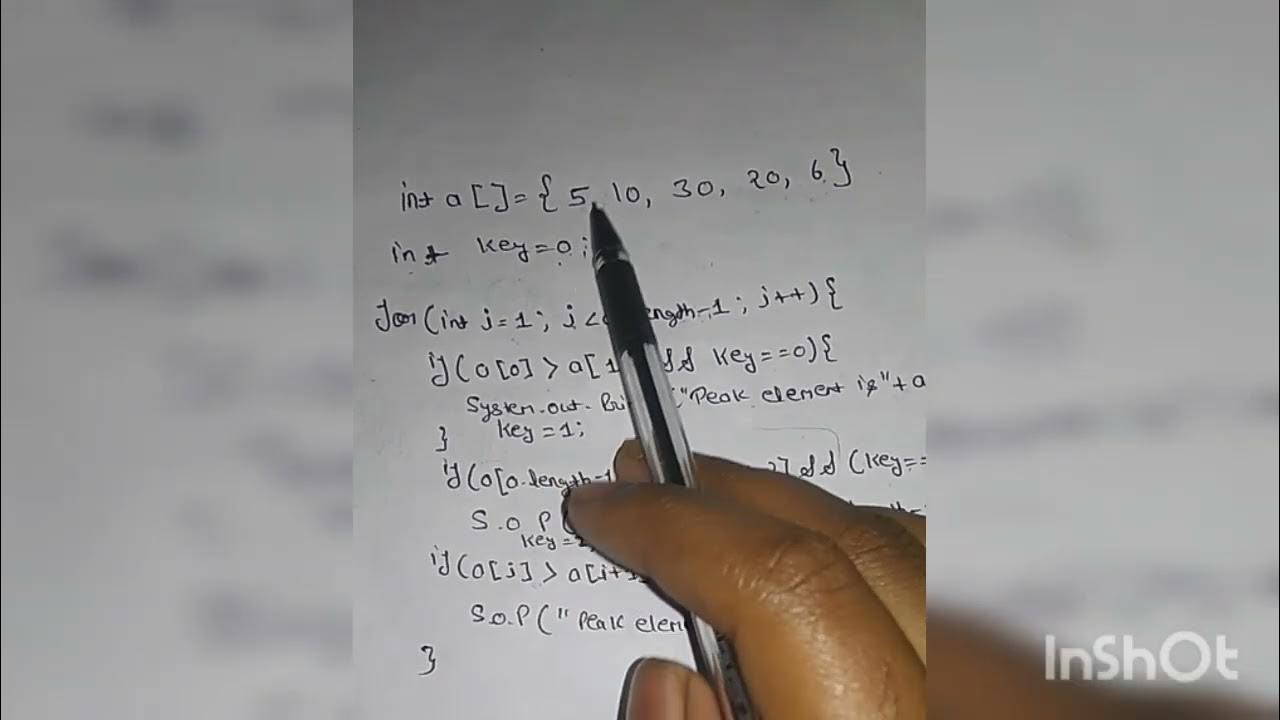 int a[]={ 5, 10, 30, 20, 6 }
int key=0;
for(int i=1; i< length-1; i++){
if(a[0] > a[1 && key==0){
System.out. "Peak element is"+a
key=1;
}
if(a[a.length-1 && (key==
S.O.P(
key=
if(a[i] > a[i+1
S.O.P(" Peak elem
}
InShOt